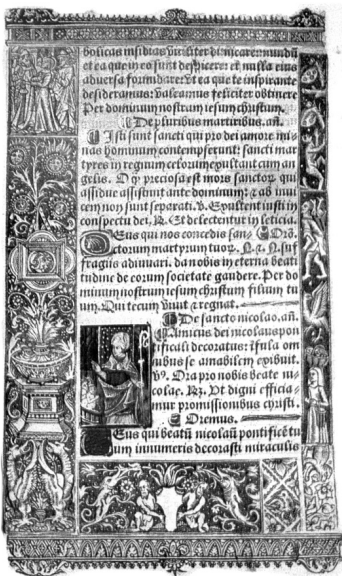 bolicas insidias viriliter dimicare: mundū
et ea que in eo sunt despicere: et nulla eius
adversa formidare: vt ea que te inspirante
desideramus: valeamus feliciter obtinere
Per dominum nostrum iesum christum.
De pluribus martiribus. añ.
Isti sunt sancti qui pro dei amore mi-
nas hominum contempserunt: sancti mar
tyres in regnum celorum exultant cum an
gelis. O q̄ preciosa est mors sanctoꝝ qui
assidue assistunt ante dominum: ⁊ ab inui
cem non sunt separati. v. Exultent iusti in
conspectu dei. R. Et delectentur in leticia.
Deus qui nos concedis san- Orō.
ctorum martyrum tuoꝝ. N. ⁊. N. suf
fragiis adiuuari. da nobis in eterna beati
tudine de eorum societate gaudere. Per do
minum nostrum iesum christum filium tu
um. Qui tecum viuit ⁊ regnat.
De sancto nicolao. añ.
Amicus dei nicolaus pon
tificali decoratus: isula om
nibus se amabilem exibuit.
v̄. Ora pro nobis beate ni-
colae. R. Vt digni efficia-
mur promissionibus christi.
Oremus.
Deus qui beatū nicolaū pontificē tu
um innumeris decorasti miraculis